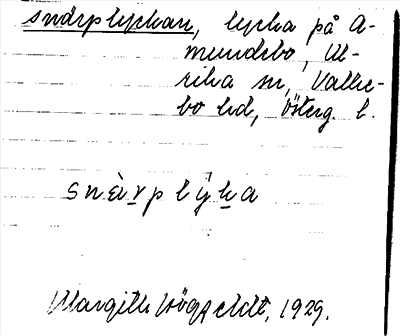 snärplyckan, lycka på A-
mundebo, Ul-
rika sn, Valke-
bo hd, Österg. l.
snèrplýka
Margith Högfeldt, 1929.